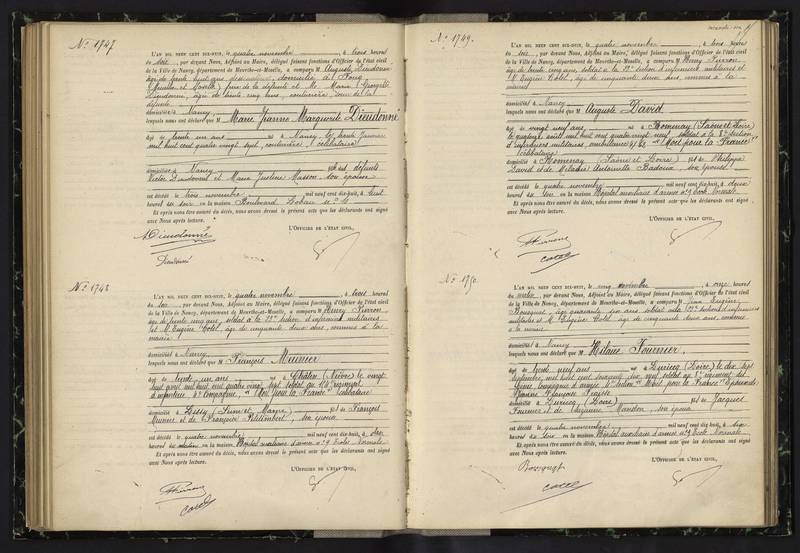 N° 1747
L'AN MIL NEUF CENT DIX-HUIT, le quatre novembre, à trois heures
du soir, par devant Nous, Adjoint au Maire, délégué faisant fonctions d'Officier de l'état civil
de la Ville de Nancy, département de Meurthe-et-Moselle, a comparu M. Auguste Dieudonné
âgé de trente huit ans, domicilié à Foug
(Meurthe et Moselle) frère de la défunte et Me Marie
Dieudonné, âgée de trente cinq ans, couturière, sœur de la
défunte
domicilié à Nancy
lesquels nous ont déclaré que M. Marie Jeanne Marguerite Dieudonné
âgé de trente un ans né à Nancy, le trente Janvier
mil huit cent quatre vingt sept, couturière, célibataire
domicilié à Nancy, fille des défunts
Victor Dieudonné et Marie Justine Masson, son épouse
est décédé le trois novembre mil neuf cent dix-huit, à huit
heures du soir en la maison Boulevard Lobau n°
Et après nous être assuré du décès, nous avons dressé le présent acte que les déclarants ont signé
avec Nous après lecture.
L'OFFICIER DE L'ÉTAT CIVIL,
Dieudonné
Dieudonné
N° 1748
L'AN MIL NEUF CENT DIX-HUIT, le quatre novembre, à trois heures
du soir, par devant Nous, Adjoint au Maire, délégué faisant fonctions d'Officier de l'état civil
de la Ville de Nancy, département de Meurthe-et-Moselle, a comparu M. Henry Pierron
âgé de trente cinq ans, soldat à la section d'infirmiers militaires
et M. Eugène Cotel, âgé de cinquante deux ans, commis à la
mairie
domiciliés à Nancy
lesquels nous ont déclaré que M. François Munier
âgé de trente un ans né à Châtin (Nièvre) le vingt
huit mil huit cent quatre vingt sept, soldat au régiment
d'infanterie, compagnie, "Mort pour la France" célibataire
domicilié à fils de François
Munier et de Françoise son épouse
est décédé le quatre novembre mil neuf cent dix-huit, à
heures du en la maison Hôpital auxiliaire d'armée n° 9 Ecole Normale
Et après nous être assuré du décès, nous avons dressé le présent acte que les déclarants ont signé
avec Nous après lecture.
L'OFFICIER DE L'ÉTAT CIVIL,
Pierron
Cotel
N° 1749
L'AN MIL NEUF CENT DIX-HUIT, le quatre novembre, à trois heures
du soir, par devant Nous, Adjoint au Maire, délégué faisant fonctions d'Officier de l'état civil
de la Ville de Nancy, département de Meurthe-et-Moselle, a comparu M. Henry Pierron
âgé de trente cinq ans, soldat à la section d'infirmiers militaires et
M. Eugène Cotel, âgé de cinquante deux ans, commis à la
mairie
domiciliés à Nancy
lesquels nous ont déclaré que M. Auguste David
âgé de vingt neuf ans né à Romenay (Saône et Loire)
le quatorze août mil huit cent quatre vingt neuf, soldat à la section
d'infirmiers militaires, ambulance "Mort pour la France"
célibataire
domicilié à Romenay (Saône et Loire) fils de Philippe
David et de Mélanie Antoinette son épouse
est décédé le quatre novembre mil neuf cent dix-huit, à
heures du soir en la maison Hôpital auxiliaire d'armée n° 9 Ecole Normale
Et après nous être assuré du décès, nous avons dressé le présent acte que les déclarants ont signé
avec Nous après lecture.
L'OFFICIER DE L'ÉTAT CIVIL,
Pierron
Cotel
N° 1750
L'AN MIL NEUF CENT DIX-HUIT, le cinq novembre, à onze heures
du matin, par devant Nous, Adjoint au Maire, délégué faisant fonctions d'Officier de l'état civil
de la Ville de Nancy, département de Meurthe-et-Moselle, a comparu M. Jean Eugène
âgé quarante six ans soldat à la section d'infirmiers
militaires et M. Eugène Cotel âgé de cinquante deux ans, commis
à la mairie
domiciliés à Nancy
lesquels nous ont déclaré que M. Hilaire Fournier,
âgé de trente neuf ans né à (Loire) le dix sept
septembre mil huit cent soixante dix neuf soldat au régiment du
Génie, compagnie "Mort pour la France" époux de
Jeanne Florentine
domicilié à (Loire) fils de Jacques
Fournier et de son épouse
est décédé le quatre novembre mil neuf cent dix-huit, à
heures du soir en la maison Hôpital auxiliaire d'armée n° 9 Ecole Normale
Et après nous être assuré du décès, nous avons dressé le présent acte que les déclarants ont signé
avec Nous après lecture.
L'OFFICIER DE L'ÉTAT CIVIL,
Cotel